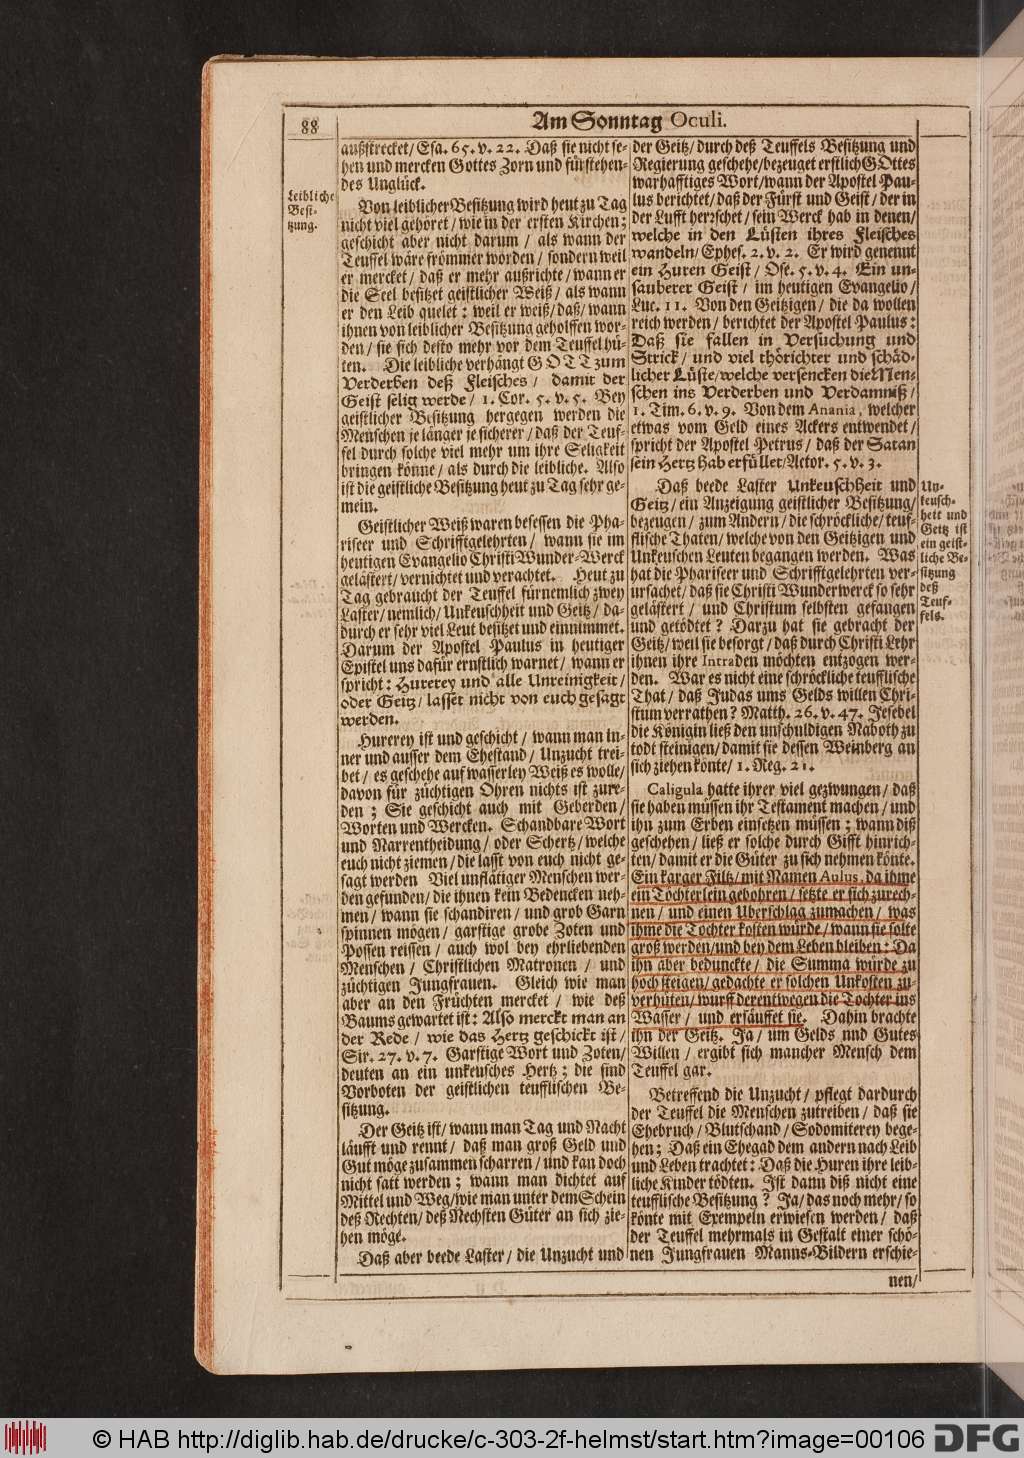 88
Am Sonntag Oculi.
außstrecket/ Esa. 65. v. 22. Daß sie nicht se-
hen und mercken Gottes Zorn und fürstehen-
des Unglück.
Leibliche
Besi-
tzung.
Von leiblicher Besitzung wird heut zu Tag
nicht viel gehöret/ wie in der ersten Kirchen;
geschicht aber nicht darum / als wann der
Teuffel wäre frömmer worden/ sondern weil
er mercket/ daß er mehr außrichte/ wann er
die Seel besitzet geistlicher Weiß/ als wann
er den Leib quelet: weil er weiß/ daß/ wann
ihnen von leiblicher Besitzung geholffen wor-
den/ sie sich desto mehr vor dem Teuffel hü-
ten. Die leibliche verhängt GOTT zum
Verderben deß Fleisches/ damit der
Geist selig werde/ 1. Cor. 5. v. 5. Bey
geistlicher Besitzung hergegen werden die
Menschen je länger je sicherer/ daß der Teuf-
fel durch solche viel mehr um ihre Seligkeit
bringen könne/ als durch die leibliche. Also
ist die geistliche Besitzung heut zu Tag sehr ge-
mein.
Geistlicher Weiß waren besessen die Pha-
riseer und Schrifftgelehrten/ wann sie im
heutigen Evangelio Christi Wunder-Werck
gelästert/ vernichtet und verachtet. Heut zu
Tag gebraucht der Teuffel fürnemlich zwey
Laster/ nemlich/ Unkeuschheit und Geitz/ da-
durch er sehr viel Leut besitzet und einnimmet.
Darum der Apostel Paulus in heutiger
Epistel uns dafür ernstlich warnet/ wann er
spricht: Hurerey und alle Unreinigkeit/
oder Geitz/ lasset nicht von euch gesagt
werden.
Hurerey ist und geschicht/ wann man in-
ner und ausser dem Ehestand/ Unzucht trei-
bet/ es geschehe auf wasserley Weiß es wolle/
davon für züchtigen Ohren nichts ist zure-
den; Sie geschicht auch mit Geberden/
Worten und Wercken. Schandbare Wort
und Narrentheidung/ oder Schertz/ welche
euch nicht ziemen/ die lasst von euch nicht ge-
sagt werden Viel unflätiger Menschen wer-
den gefunden/ die ihnen kein Bedencken neh-
men/ wann sie schandiren/ und grob Garn
spinnen mögen/ garstige grobe Zoten und
Possen reissen/ auch wol bey ehrliebenden
Menschen/ Christlichen Matronen/ und
züchtigen Jungfrauen. Gleich wie man
aber an den Früchten mercket/ wie deß
Baums gewartet ist: Also merckt man an
der Rede/ wie das Hertz geschickt ist/
Sir. 27. v. 7. Garstige Wort und Zoten/
deuten an ein unkeusches Hertz; die sind
Vorboten der geistlichen teufflischen Be-
sitzung.
Der Geitz ist/ wann man Tag und Nacht
läufft und rennt/ daß man groß Geld und
Gut möge zusammen scharren/ und kan doch
nicht satt werden; wann man dichtet auf
Mittel und Weg/ wie man unter dem Schein
deß Rechten/ deß Nechsten Güter an sich zie-
hen möge.
Daß aber beede Laster/ die Unzucht und
der Geitz/ durch deß Teuffels Besitzung und
Regierung geschehe/ bezeuget erstlich GOttes
warhafftiges Wort/ wann der Apostel Pau-
lus berichtet/ daß der Fürst und Geist/ der in
der Lufft herrschet/ sein Werck hab in denen/
welche in den Lüsten ihres Fleisches
wandeln/ Ephes. 2. v. 2. Er wird genennt
ein Huren Geist/ Ose. 5. v. 4. Ein un-
sauberer Geist/ im heutigen Evangelio/
Luc. 11. Von den Geitzigen/ die da wollen
reich werden/ berichtet der Apostel Paulus:
Daß sie fallen in Versuchung und
Strick/ und viel thörichter und schäd-
licher Lüste/ welche versencken die Men-
schen ins Verderben und Verdamniß/
1. Tim. 6. v. 9. Von dem Anania, welcher
etwas vom Geld eines Ackers entwendet/
spricht der Apostel Petrus/ daß der Satan
sein Hertz hab erfüllet/ Actor. 5. v. 3.
Daß beede Laster Unkeuschheit und
Geitz/ ein Anzeigung geistlicher Besitzung/
bezeugen/ zum Andern/ die schröckliche/ teuf-
flische Thaten/ welche von den Geitzigen und
Unkeuschen Leuten begangen werden. Was
hat die Phariseer und Schrifftgelehrten ver-
ursachet/ daß sie Christi Wunderwerck so sehr
gelästert/ und Christum selbsten gefangen
und getödtet? Darzu hat sie gebracht der
Geitz/ weil sie besorgt/ daß durch Christi Lehr
ihnen ihre Intraden möchten entzogen wer-
den. War es nicht eine schröckliche teufflische
That/ daß Judas ums Gelds willen Chri-
stum verrathen? Matth. 26. v. 47. Jesebel
die Königin ließ den unschuldigen Naboth zu
todt steinigen/ damit sie dessen Weinberg an
sich ziehen könte/ 1. Reg. 21.
Un-
keusch-
heit und
Geitz ist
ein geist-
liche Be-
sitzung
deß
Teuf-
fels.
Caligula hatte ihrer viel gezwungen/ daß
sie haben müssen ihr Testament machen/ und
ihn zum Erben einsetzen müssen; wann diß
geschehen/ ließ er solche durch Gifft hinrich-
ten/ damit er die Güter zu sich nehmen könte.
Ein karger Filtz/ mit Namen Aulus, da ihme
ein Töchterlein gebohren/ setzte er sich zurech-
nen/ und einen Uberschlag zumachen/ was
ihme die Tochter kosten würde/ wann sie solte
groß werden/ und bey dem Leben bleiben: Da
ihn aber bedunckte/ die Summa würde zu
hoch steigen/ gedachte er solchen Unkosten zu-
verhüten/ wurff derentwegen die Tochter ins
Wasser/ und ersäuffet sie. Dahin brachte
ihn der Geitz. Ja/ um Gelds nnd Gutes
Willen/ ergibt sich mancher Mensch dem
Teuffel gar.
Betreffend die Unzucht/ pflegt dardurch
der Teuffel die Menschen zutreiben/ daß sie
Ehebruch/ Blutschand/ Sodomiterey bege-
hen; Daß ein Ehegad dem andern nach Leib
und Leben trachtet: Daß die Huren ihre leib-
liche Kinder tödten. Ist dann diß nicht eine
teufflische Besitzung? Ja/ das noch mehr/ so
könte mit Exempeln erwiesen werden/ daß
der Teuffel mehrmals in Gestalt einer schö-
nen Jungfrauen Manns-Bildern erschie-
nen/
© HAB http://diglib.hab.de/drucke/c-303-2f-helmst/start.htm?image=00106
DFG